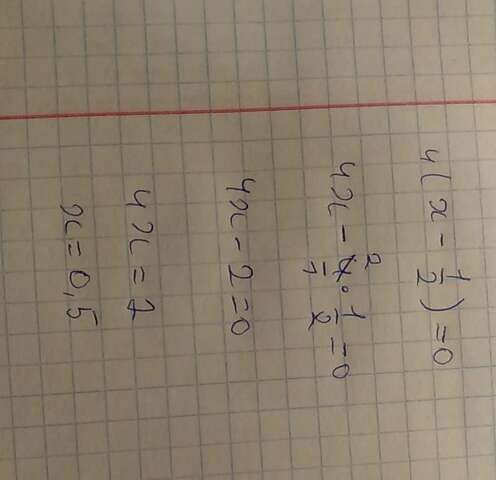 4(x - 1/2) = 0
4x - 4/1 · 1/2 = 0
4x - 2 = 0
4x = 2
x = 0,5